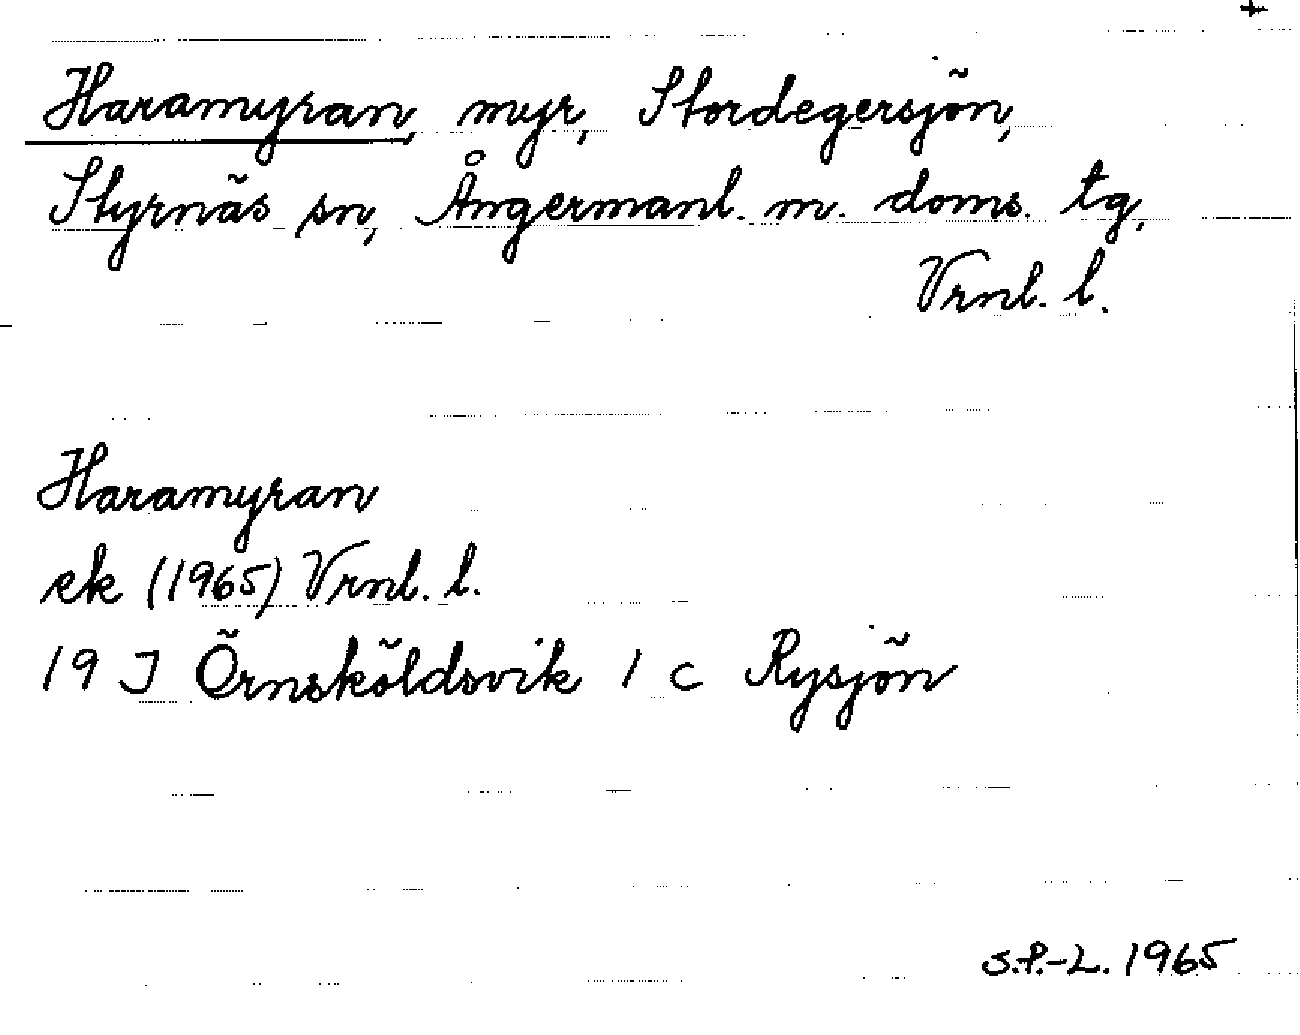 +
Haramyran, myr, Stordegersjön,
Styrnäs sn, Ångermanl. m. doms. tg,
Vrnl. l.
Haramyran
ek (1965) Vrnl. l.
19 J Örnsköldsvik 1 c Rysjön
S.P.-L. 1965